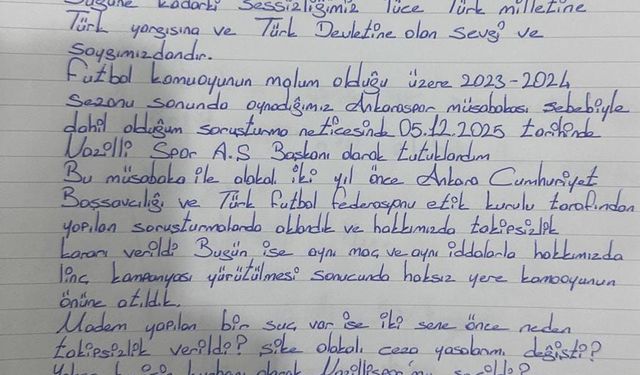 Bugüne kadarki sessizliğimiz Yüce Türk milletine
Türk yargısına ve Türk Devletine olan sevgi ve
saygımızdandır.
Futbol kamuoyunun malum olduğu üzere 2023-2024
Sezonu sonunda oynadığımız Ankaraspor müsabakası sebebiyle
dahil olduğum soruşturma neticesinde 05.12.2025 tarihinde
Nazilli Spor A.Ş Başkanı olarak tutuklandım
Bu müsabaka ile alakalı iki yıl önce Ankara Cumhuriyet
Başsavcılığı ve Türk Futbol Federasyonu etik kurulu tarafından
yapılan soruşturmalarda aklandık ve hakkımızda takipsizlik
kararı verildi Bugün ise aynı maç ve aynı iddalarla hakkımızda
linç kampanyası yürütülmesi sonucunda haksız yere kamaoyunun
önüne atıldık.
Madem yapılan bir suç var ise iki sene önce neden
takipsizlik verildi? şike alakalı ceza yasalarımı değişti?
olarak Nazillispor'mu